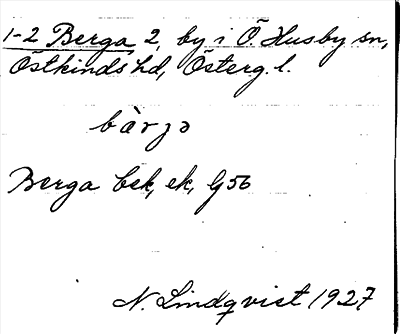 1-2 Berga 2, by i Ö. Husby sn,
Östkinds hd, Österg. l.
bàrjə
Berga bek, ek, G56
N. Lindqvist 1927